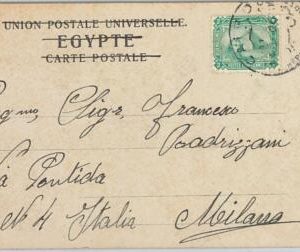 UNION POSTALE UNIVERSELLE.
EGYPTE
CARTE POSTALE
Sigr Francesco
Badrizzani
Pontida
No 4 Italia Milano